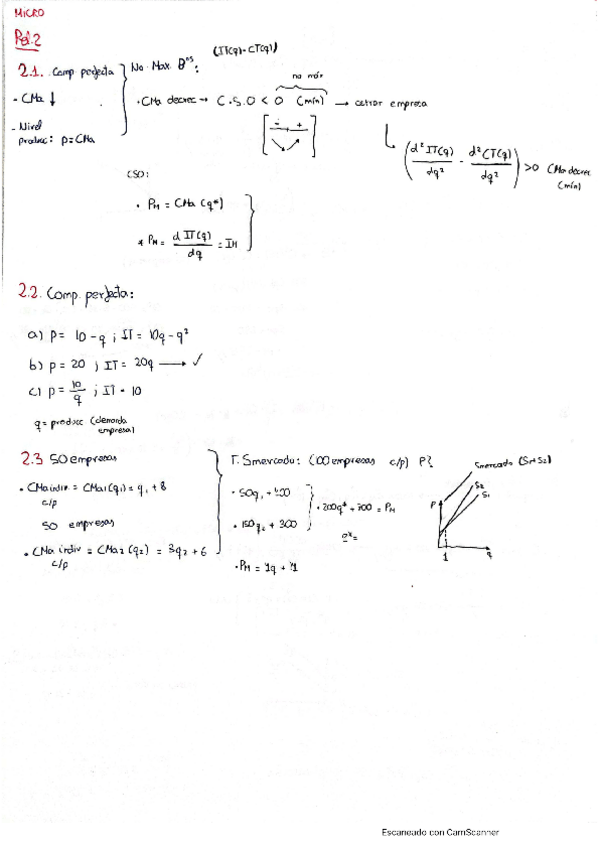 MICRO
Pel.2
2.1. Comp perfecta
- CMa ↓
- Nivel
produc: p=CMa
No Max. Bᵒˢ:
(IT(q)-CT(q))
no máx
· CMa decrec → C.S.O < 0 (mín) → cerrar empresa
- +
(d²IT(q)/dq² - d²CT(q)/dq²) >0 CMa decrec
(mín)
CSO:
· PM = CMa (q*)
* PM = d IT(q)/dq = IM
2.2. Comp. perfecta:
a) p= 10-q ; IT= 10q-q²
b) p= 20 ; IT= 20q → ✓
c) p= 10/q ; IT = 10
q= produc (demanda
empresa)
2.3 50 empresas
· CMa indiv = CMa1(q1) = q1 + 8
c/p
50 empresas
· CMa indiv = CMa2 (q2) = 3q2 + 6
c/p
T. Smercado: (100 empresas c/p) P?
· 50q1 + 400
· 150q2 + 300
· 200q* + 700 = PM
q*=
· PM = 1q + 1
Smercado (S1+S2)
S2
S1
P
1
q
Escaneado con CamScanner